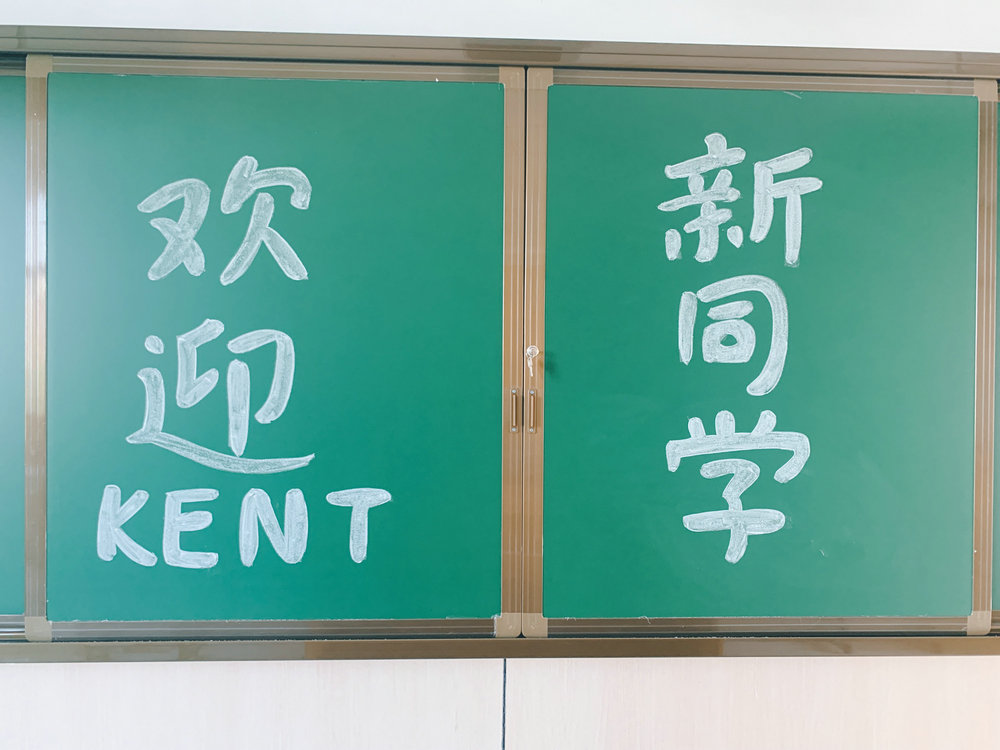 欢迎
KENT
新同学